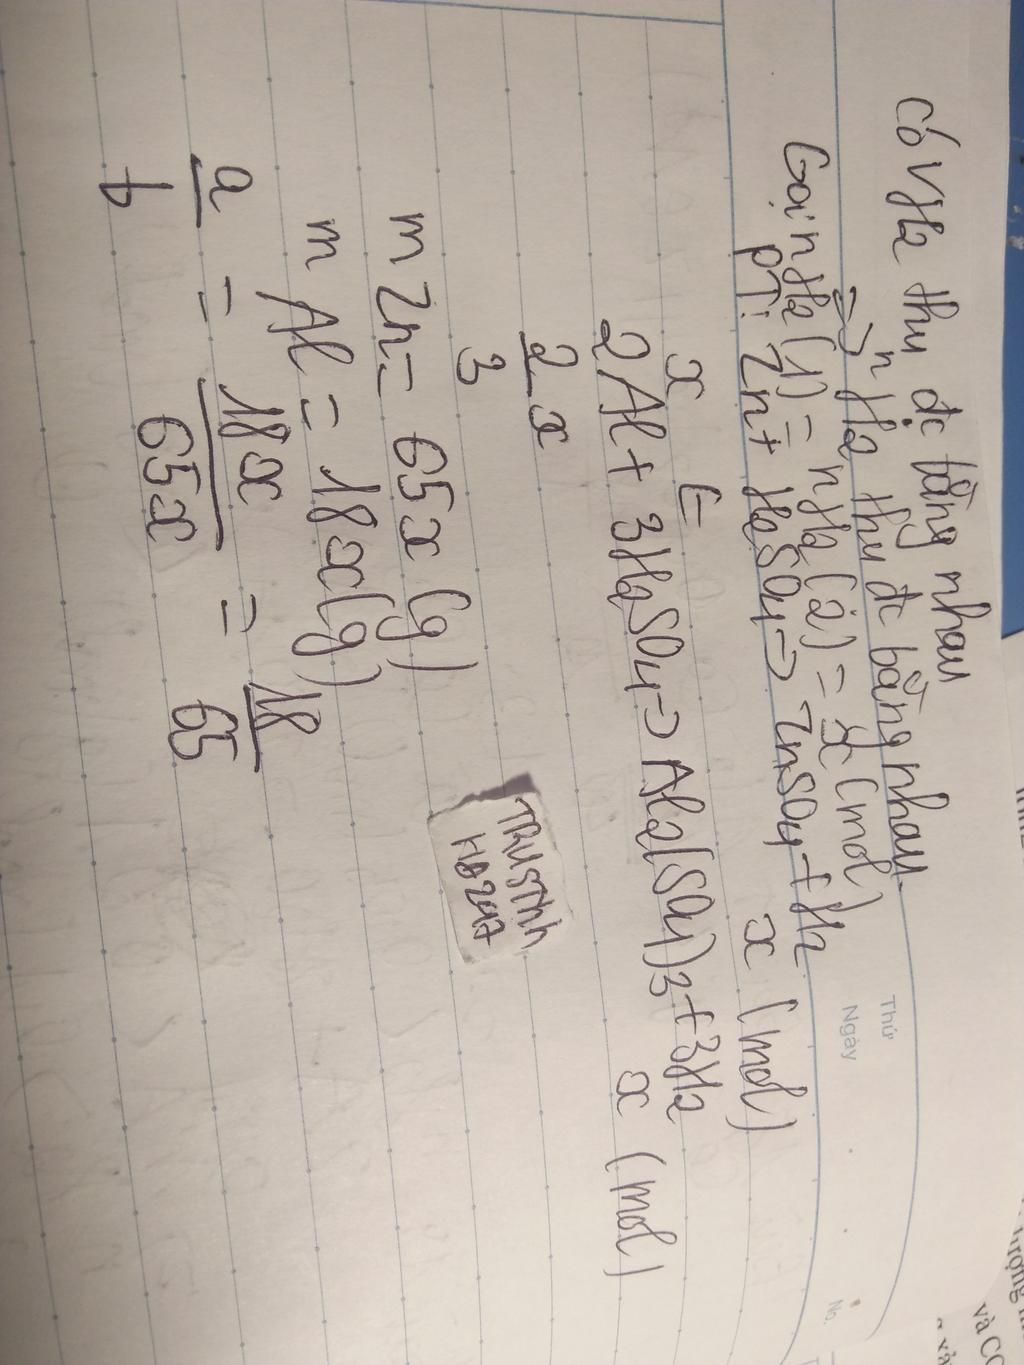 Thứ
Ngày
No.
có VH2 thu đc bằng nhau
=> nH2 thu đc bằng nhau.
Gọi nH2 (1) = nH2 (2) = x (mol)
PT: Zn + H2SO4 -> ZnSO4 + H2
x <- x (mol)
2Al + 3H2SO4 -> Al2(SO4)3 + 3H2
2/3 x x (mol)
m Zn = 65x (g)
m Al = 18x (g)
a/b = 18x/65x = 18/65
TRUSTNY
HD247
lượng
và CO
và